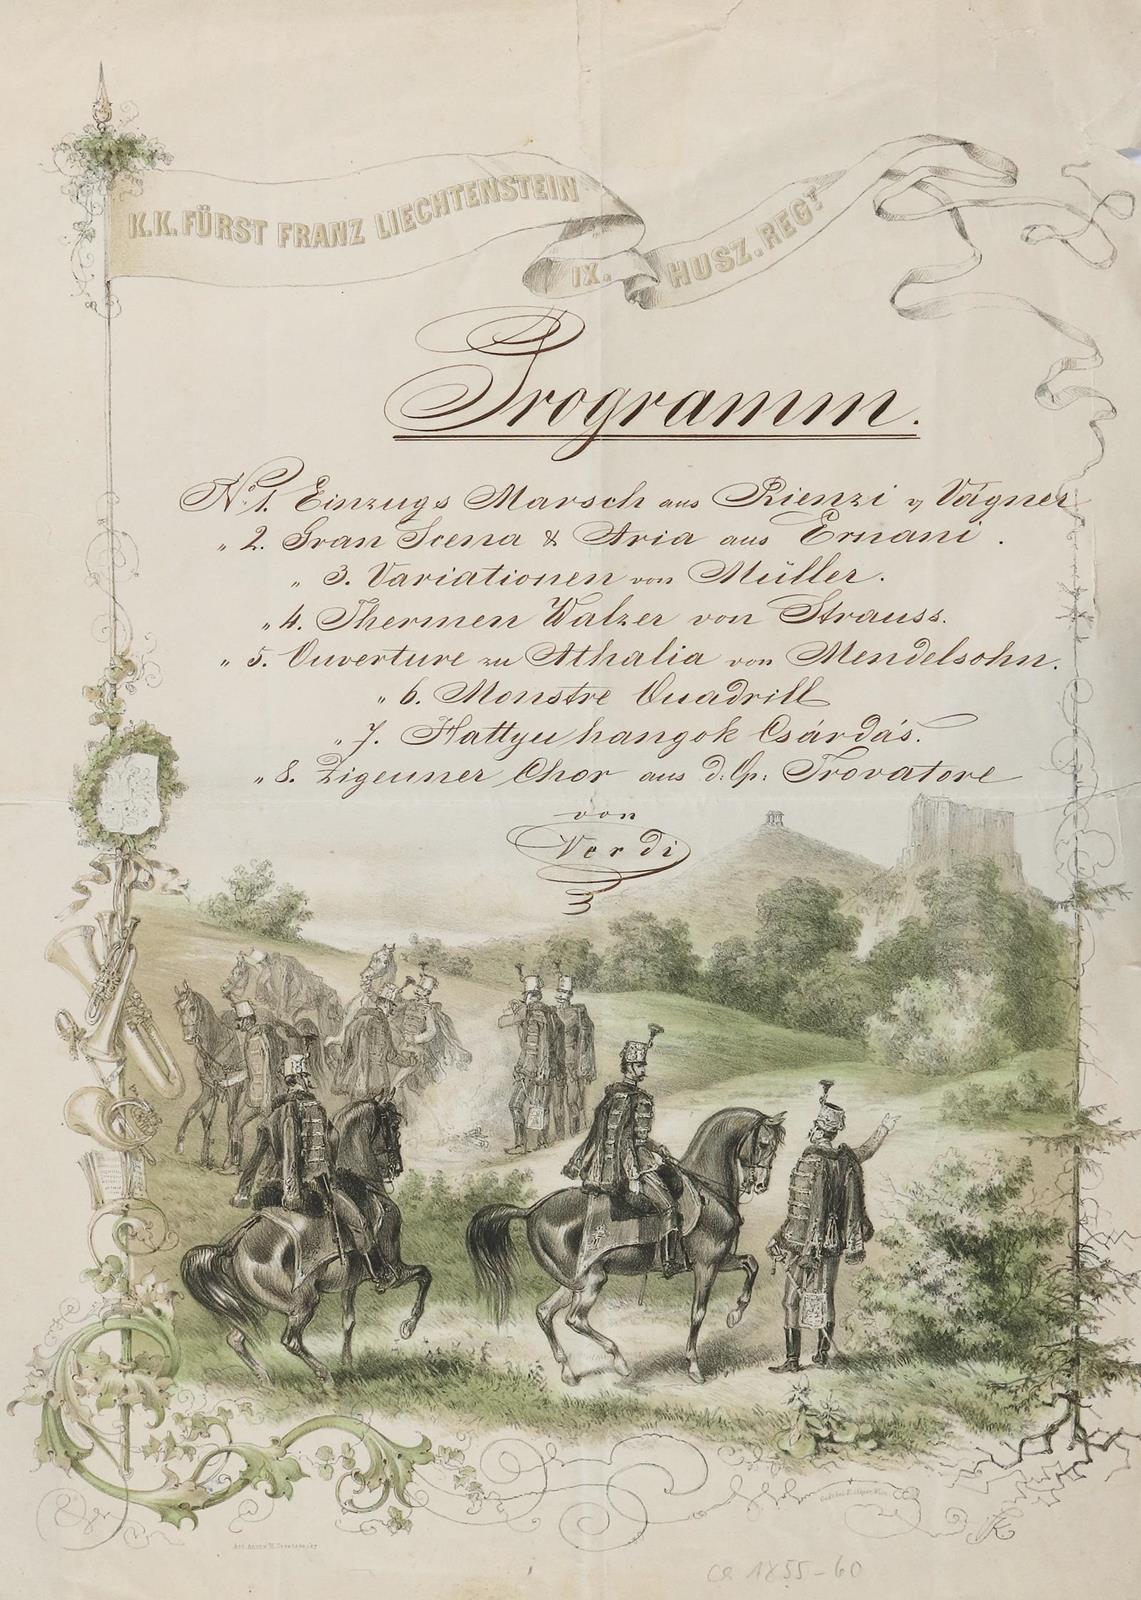 K.K. FÜRST FRANZ LIECHTENSTEIN
IX. HUSZ. REGT
Programm.
No. 1. Einzugs Marsch aus Rienzi v Vagner
" 2. Gran Scena & Aria aus Ernani.
" 3. Variationen von Müller.
" 4. Thermen Walzer von Strauss.
" 5. Ouverture zu Athalia von Mendelsohn.
" 6. Monstre Quadrill
" 7. Hattyu hangok Csárdás.
" 8. Zigeuner Chor aus d: Op: Trovatore
von
Verdi
ca 1855-60